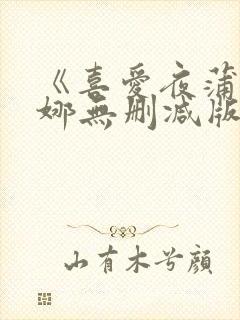 《喜爱夜蒲
娜無删减版
山有木兮顔